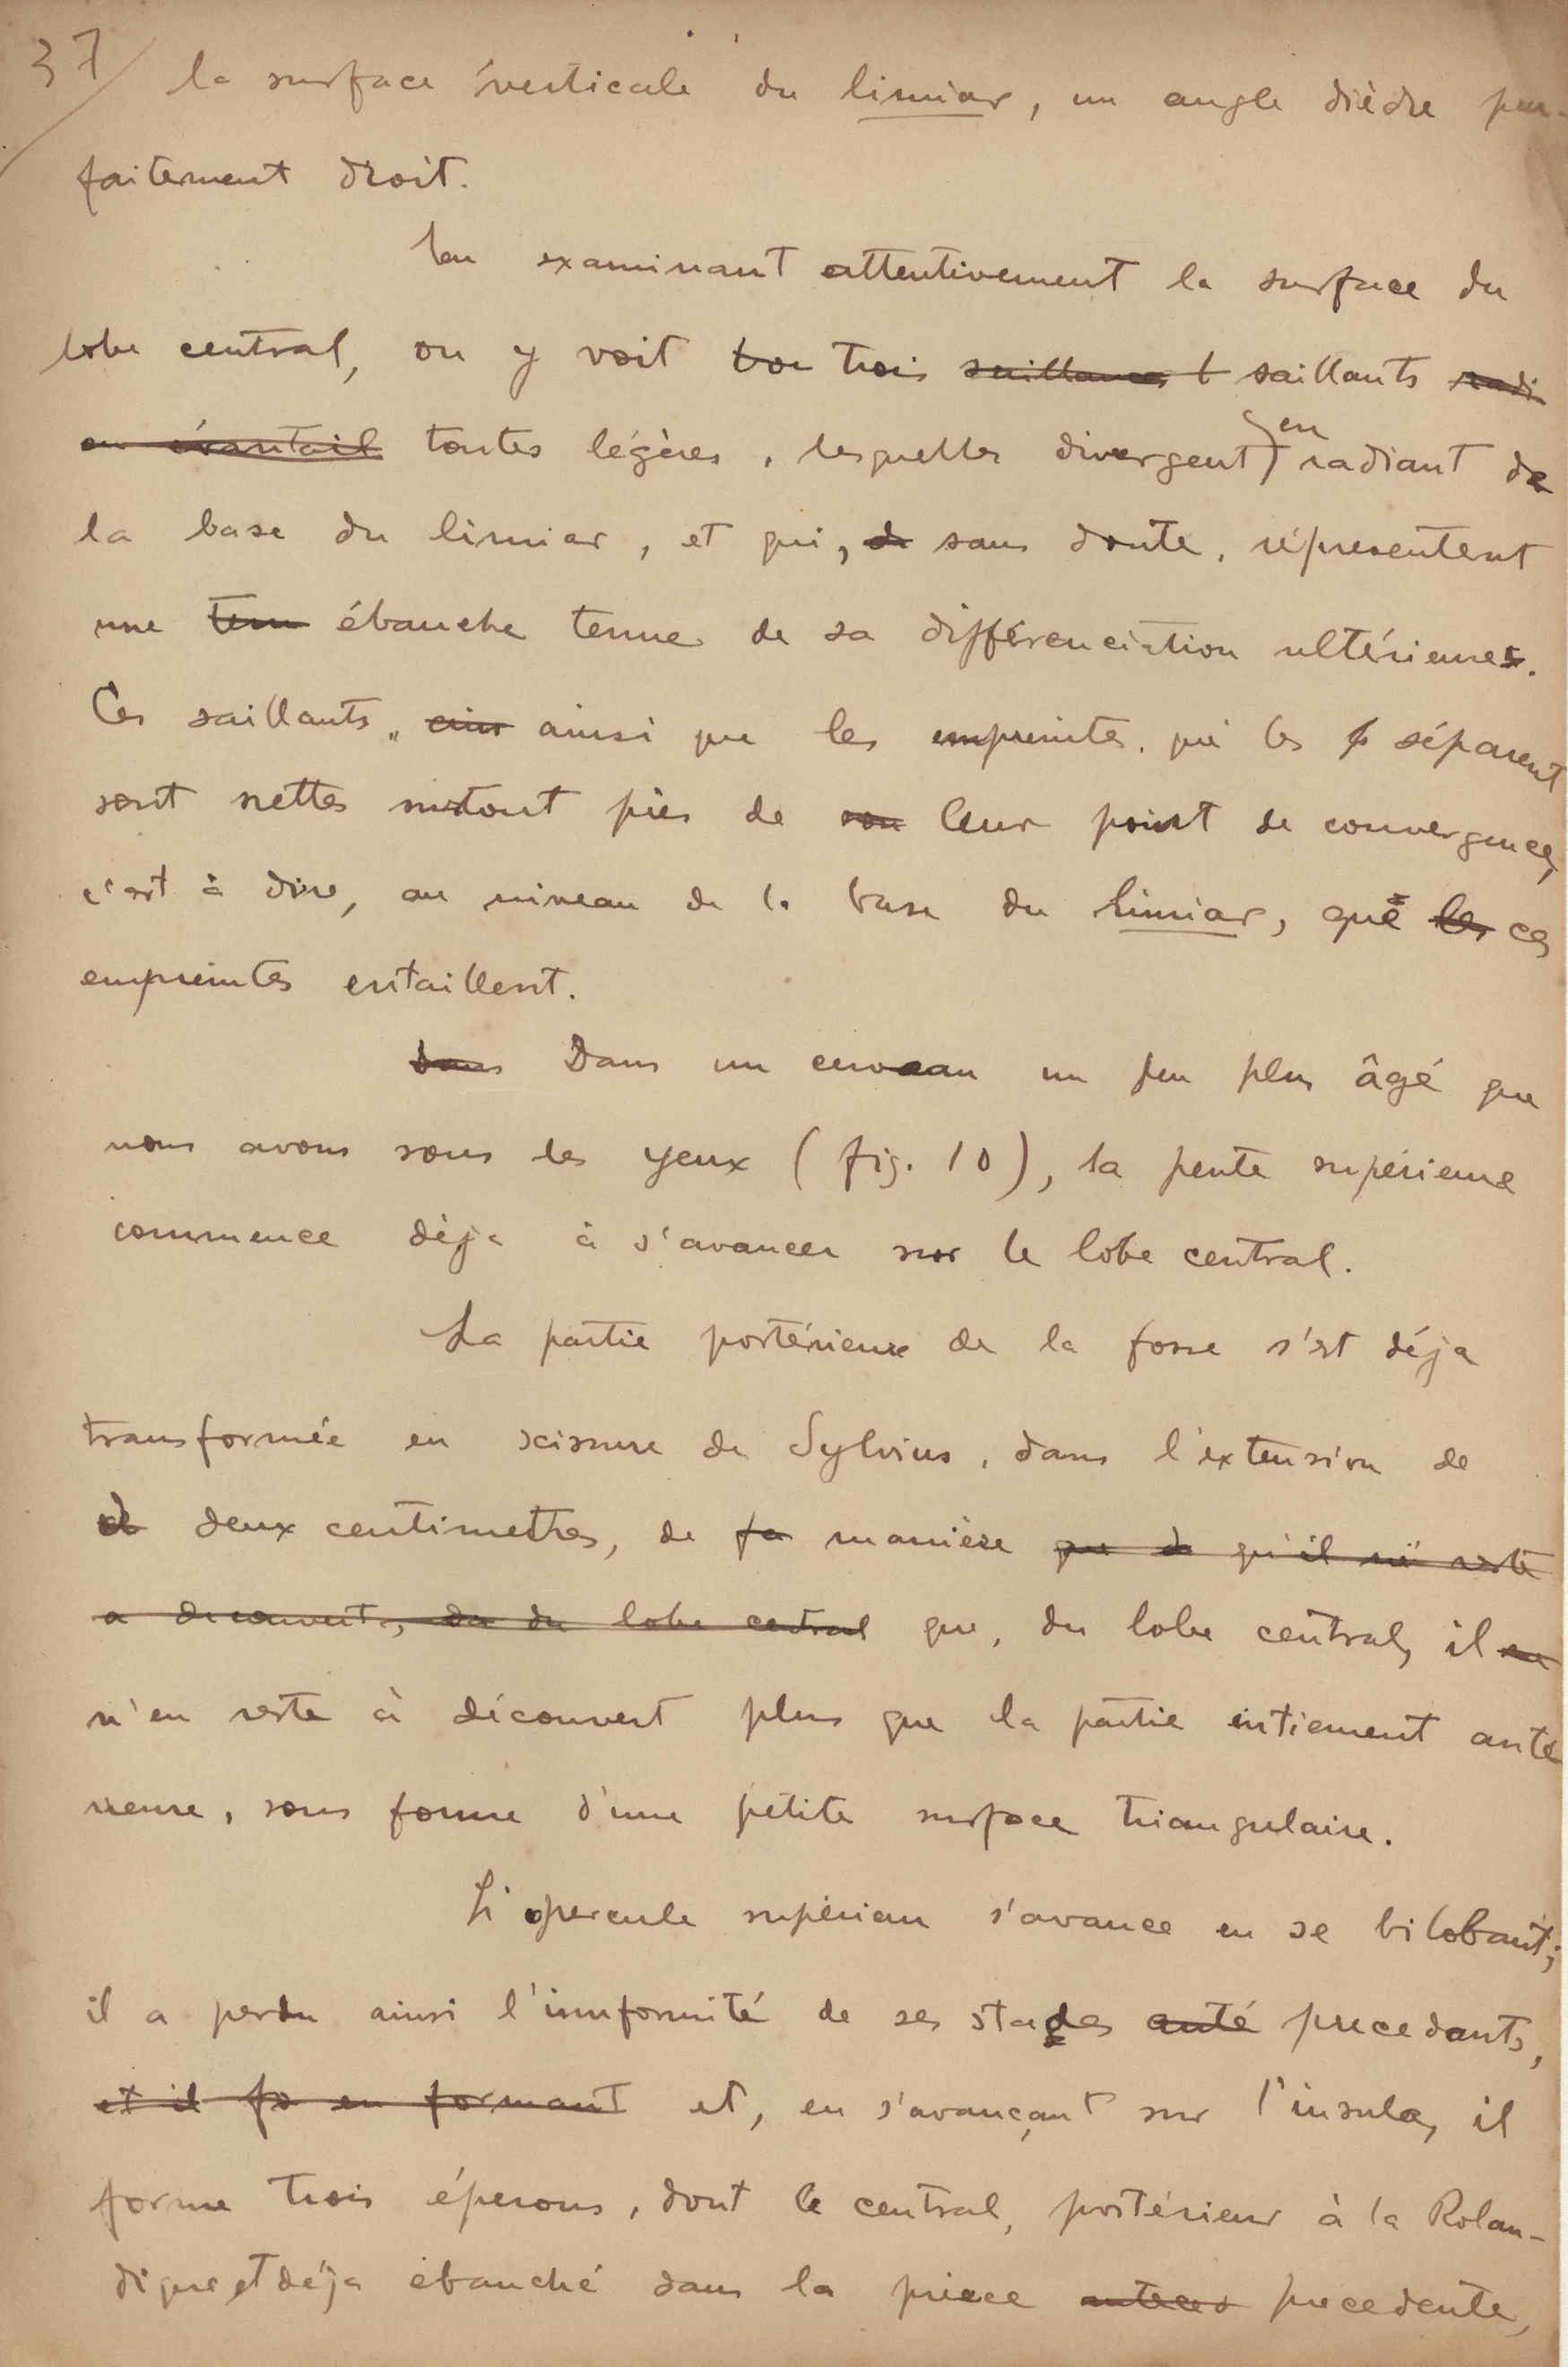 37/ la surface verticale du limiar, un angle dièdre par-
faitement droit.
En examinant attentivement la surface du
lobe central, on y voit trois saillants
toutes légères, lesquelles divergent en radiant de
la base du limiar, et qui, sans doute, répresentent
une ébauche tenue de sa différenciation ultérieure.
Ces saillants, ainsi que les empreintes, qui les séparent
sont nettes surtout près de leur point de convergence,
c'est à dire, au niveau de la base du limiar, que ces
empreintes entaillent.
Dans un cerveau un peu plus âgé que
nous avons sous les yeux (fig. 10), la pente supérieure
commence dèja à s'avancer sur le lobe central.
La partie postérieure de la fosse s'est déja
transformée en scissure de Sylvius, dans l'extension de
deux centimetres, de manière que de qu'il ne reste
a decouvert, du lobe central que, du lobe central, il
n'en reste à découvert plus que la partie entierement anté
rieure, sous forme d'une petite surface triangulaire.
L'opercule supérieur s'avance en se bilobant;
il a perdu ainsi l'inuformité de ses stades anté precedants,
et il fo en formant et, en s'avançant sur l'insula, il
forme trois éperons, dont le central, postérieur à la Rolan-
dique et déja ébauché dans la pièce precedente,